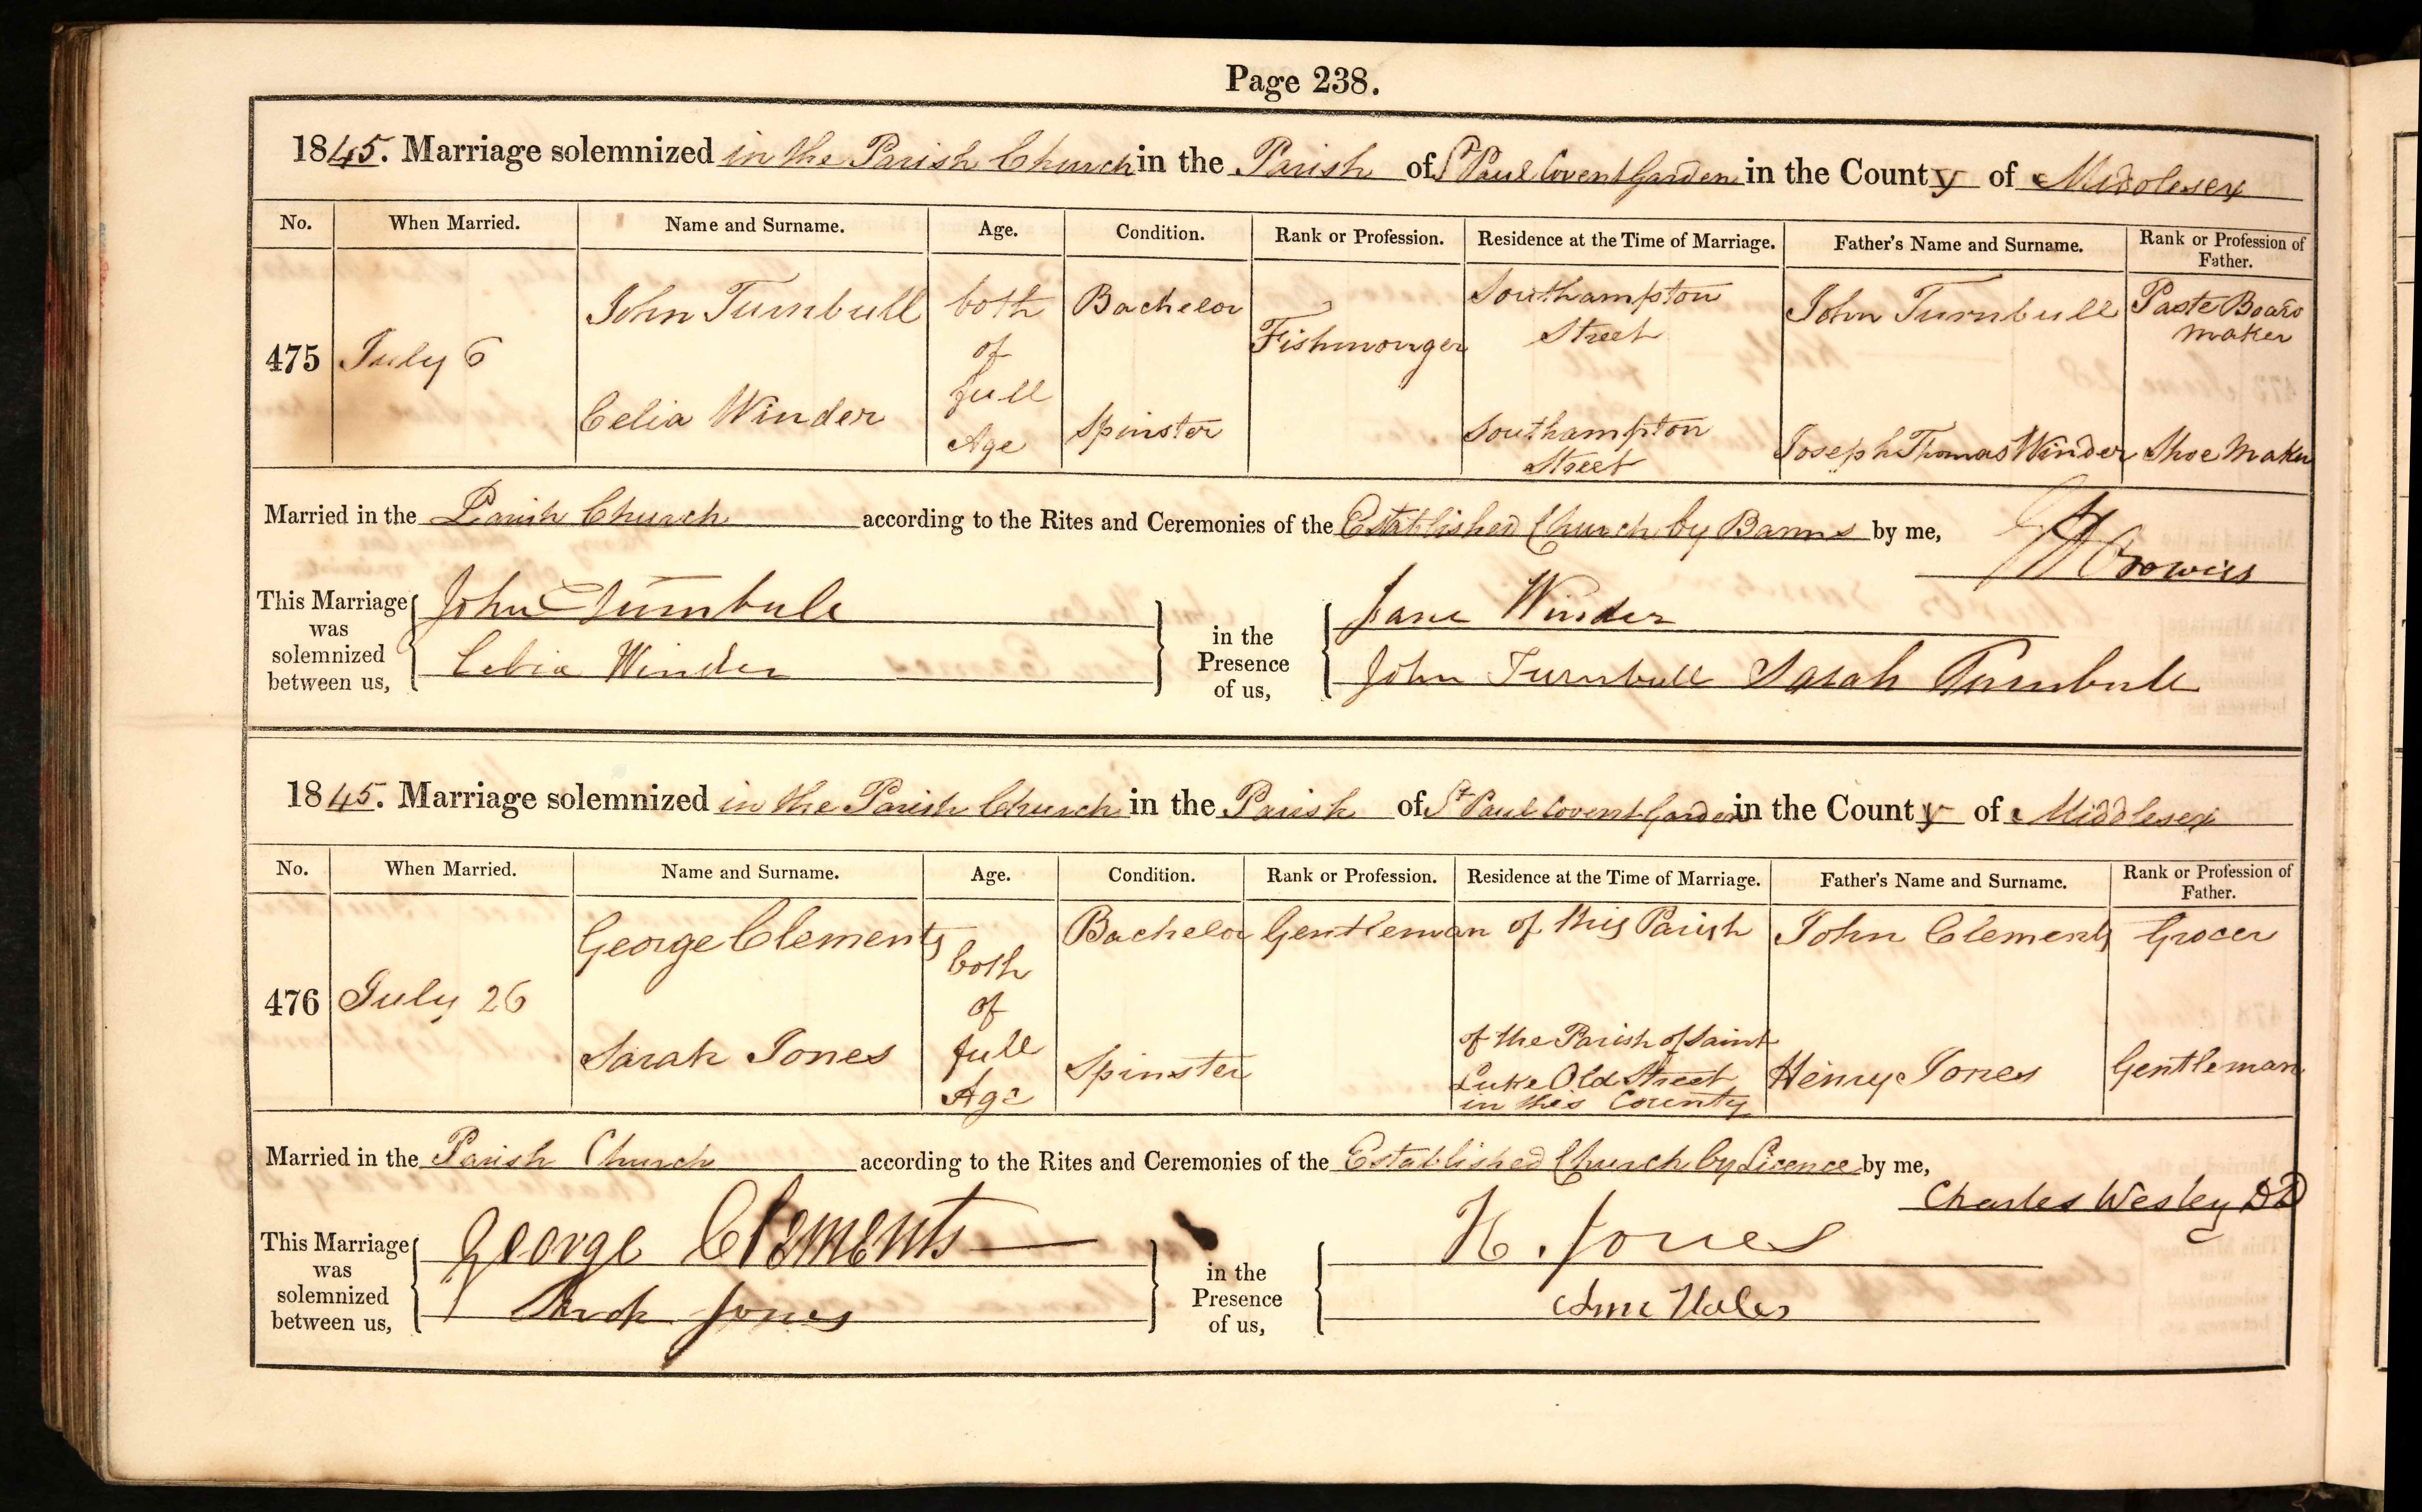 Page 238.
1845. Marriage solemnized in the Parish Church in the Parish of St Paul Covent Garden in the County of Middlesex
No. When Married. Name and Surname. Age. Condition. Rank or Profession. Residence at the Time of Marriage. Father's Name and Surname. Rank or Profession of Father.
475 July 6 John Turnbull both of full Age Bachelor Fishmonger Southampton Street John Turnbull Paste Board maker
Celia Winder Spinster Southampton Street Joseph Thomas Winder Shoe Maker
Married in the Parish Church according to the Rites and Ceremonies of the Established Church by Banns by me,
This Marriage was solemnized between us, John Turnbull in the Presence of us, Jane Winder
Celia Winder John Turnbull Sarah Turnbull
1845. Marriage solemnized in the Parish Church in the Parish of St Paul Covent Garden in the County of Middlesex
No. When Married. Name and Surname. Age. Condition. Rank or Profession. Residence at the Time of Marriage. Father's Name and Surname. Rank or Profession of Father.
476 July 26 George Clements both of full Age Bachelor Gentleman of this Parish John Clements Grocer
Sarah Jones Spinster of the Parish of Saint Luke Old Street in this County Henry Jones Gentleman
Married in the Parish Church according to the Rites and Ceremonies of the Established Church by Licence by me, Charles Wesley DD
This Marriage was solemnized between us, George Clements in the Presence of us, H. Jones
Sarah Jones